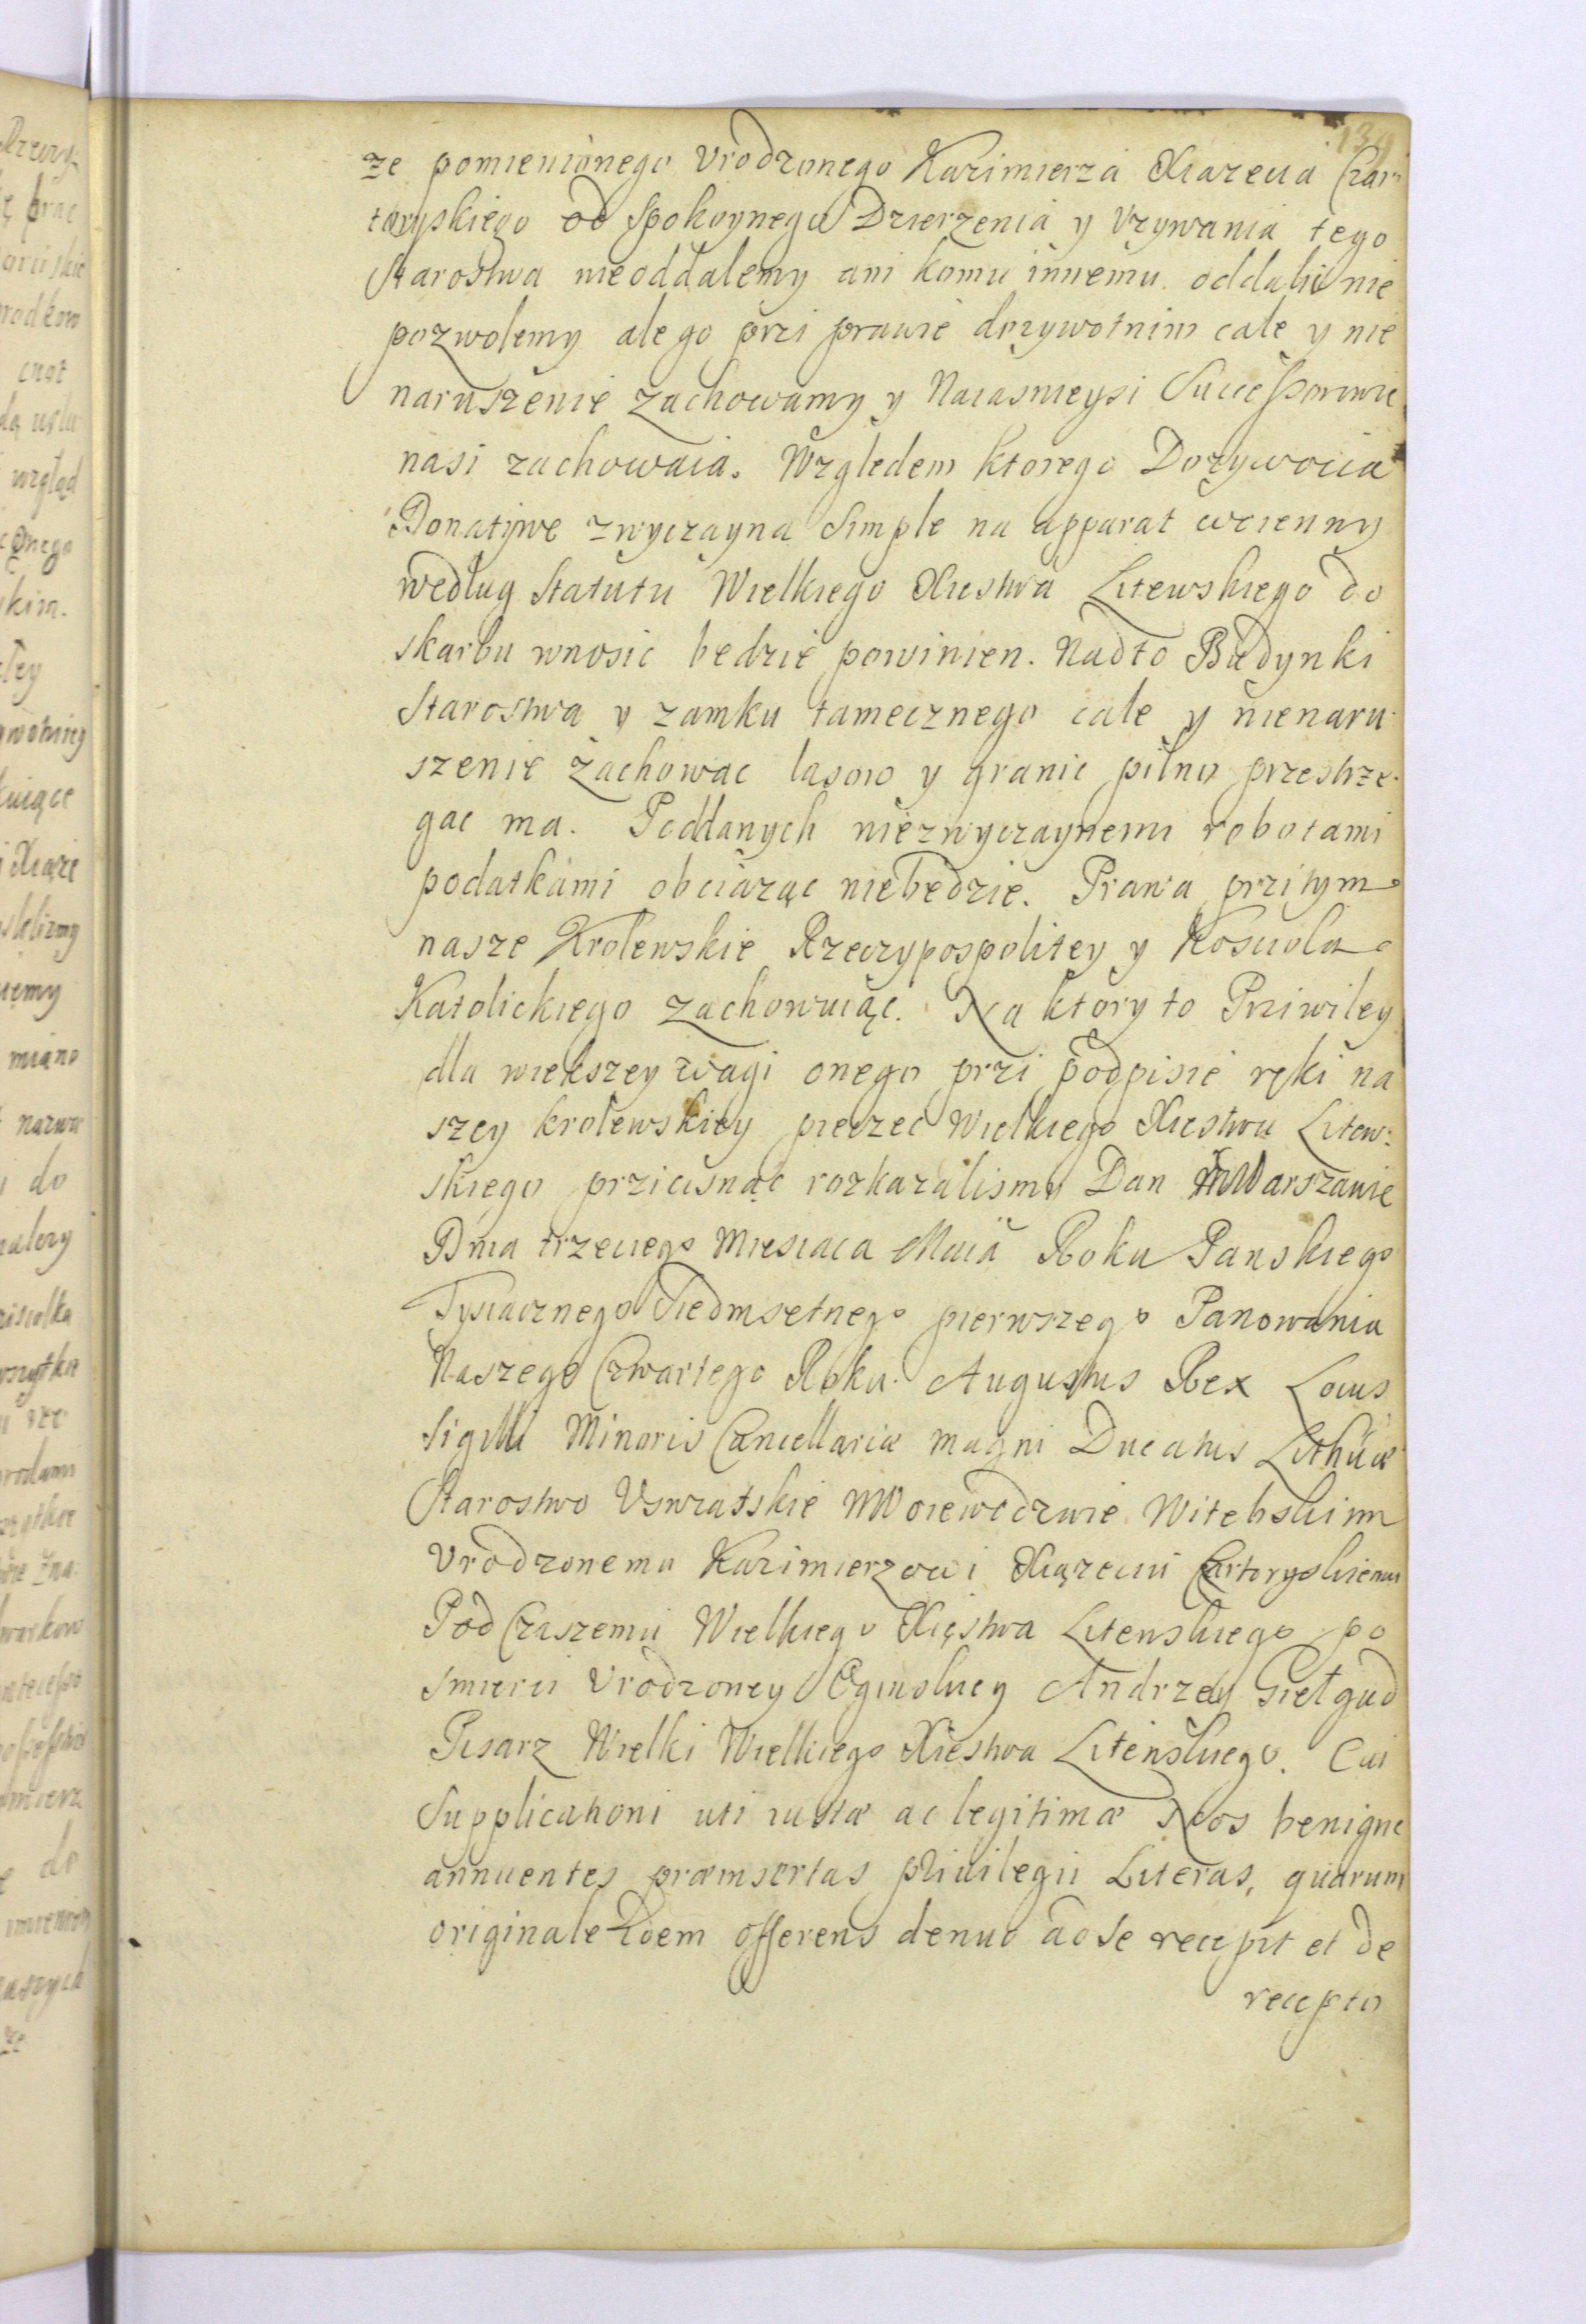 139
że pomienionego Vrodzonego Kazimierza Xiazecia Czar
toryskiego od Spokoynego Dzierzenia y Vzywania tego
Starostwa nieoddalemy ani komu innemu oddalic nie
pozwolemy ale go przi prawie dozywotnim cale y nie
naruszenie zachowamy y Naiasnieysi Successorowie
nasi zachowaia. Względem ktorego Dozywocia
Donatywę zwyczayna Simple na apparat woienny
według Statutu Wielkiego Xiestwa Litewskiego do
skarbu wnosic bedzie powinien. Nadto Budynki
Starostwa y zamku tamecznego cale y nienaru
szenie zachowac lasow y granic pilno przestrze
gac ma. Poddanych niezwyczaynemi robotami
podatkami obciązac niebędzie. Prawa przitym
nasze Krolewskie Rzeczypospolitey y Kosciola
Katolickiego zachowuiąc. Na ktory to Priwiley
dla większey wagi onego przi podpisie ręki na
szey krolewskiey pieczec Wielkiego Xiestwa Litew:
skiego przicisnąc rozkazalismy Dan w Warszawie
Dnia trzeciego Miesiaca Maia Roku Panskiego
Tysiacznego Siedmsetnego pierwszego Panowania
Naszego Czwartego Roku. Augustus Rex Locus
Sigilli Minoris Cancellariæ Magni Ducatus Lithuæ
Starostwo Vswiatskie w Woiewodzwie Witebskim
Vrodzonemu Kazimierzowi Xiązeciu Czartoryskiemu
Pod Czaszemu Wielkiego Xięstwa Litewskiego po
smierci Vrodzoney Oginskiey Andrzey Giełgud
Pisarz Wielki Wielkiego Xiestwa Litewskiego. Cui
Supplicationi uti iustæ ac legitimæ Nos benigne
annuentes præinsertas Privilegii Literas, quarum
originale idem offerens denuo ad se recepit et de
recepto